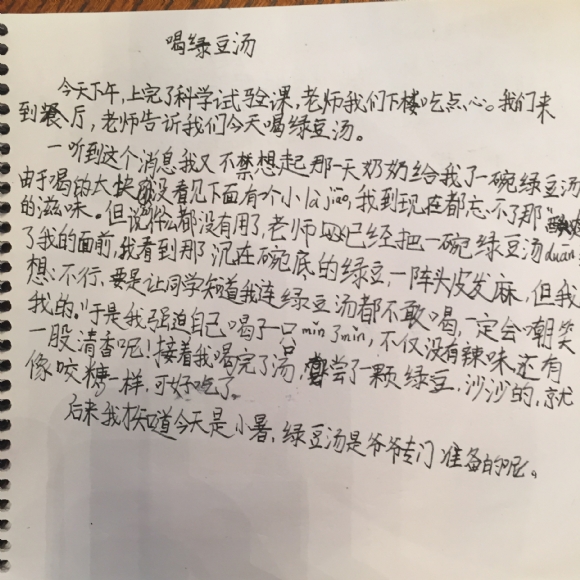 喝绿豆汤
今天下午，上完了科学试验课，老师我们下楼吃点心。我们来
到餐厅，老师告诉我们今天喝绿豆汤。
一听到这个消息我又不禁想起那一天奶奶给我了一碗绿豆汤
由于喝的太快没看见下面有个小là jiāo，我到现在都忘不了那
的滋味。但说什么都没有用了，老师已经把一碗绿豆汤duān
了我的面前，我看到那沉在碗底的绿豆，一阵头皮发麻，但我
想：不行，要是让同学知道我连绿豆汤都不敢喝，一定会嘲笑
我的。"于是我强迫自己喝了一口mǐn了mǐn，不仅没有辣味还有
一股清香呢！接着我喝完了汤，尝了一颗绿豆，沙沙的，就
像咬糖一样，可好吃了。
后来我才知道今天是小暑，绿豆汤是爷爷专门准备的呢。